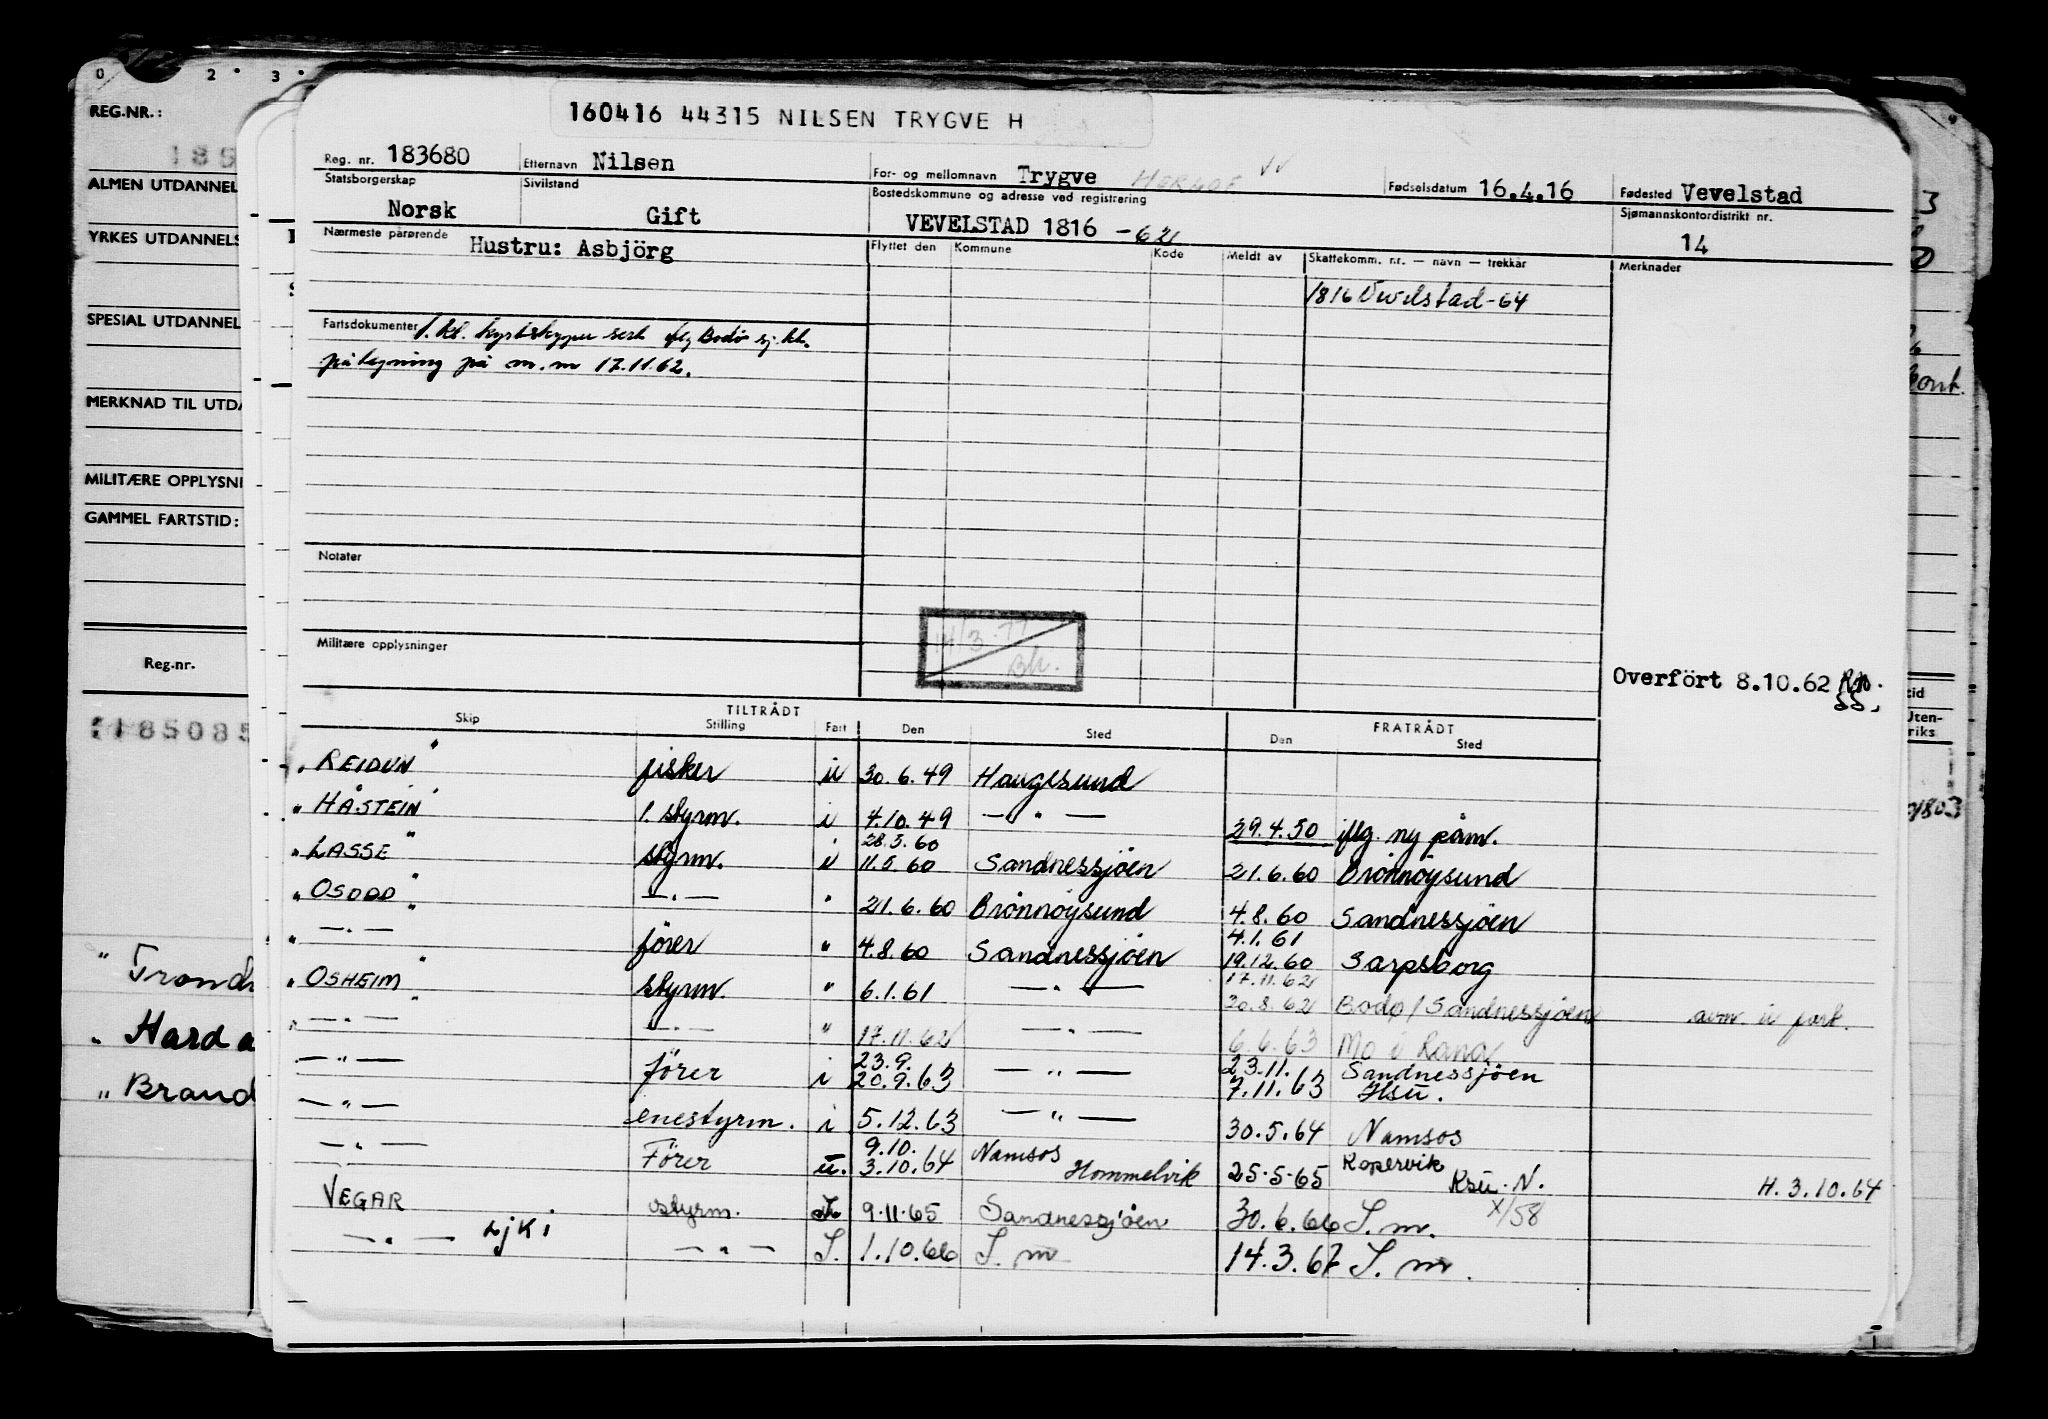 0 2 3
REG.NR.:
185
ALMEN UTDANNEL
YRKES UTDANNELS
SPESIAL UTDANNEL
MERKNAD TIL UTDA
MILITÆRE OPPLYSNI
GAMMEL FARTSTID:
Reg.nr.
185085
" Trondh
" Harda
" Brand
160416 44315 NILSEN TRYGVE H
Reg. nr. 183680 Etternavn Nilsen For- og mellomnavn Trygve Fødselsdatum 16.4.16 Fødested Vevelstad
Statsborgerskap Norsk Sivilstand Gift Bostedskommune og adresse ved registrering VEVELSTAD 1816 -62 Sjømannskontordistrikt nr. 14
Nærmeste pårørende Hustru: Asbjörg Flyttet den Kommune Kode Meldt av Skattekomm. nr. — navn — trekkår Merknader
1816 Vevelstad-64
Fartsdokumenter 1. kl. kystskipper sert. flg Bodø sj.kt.
påtegning på m.m 17.11.62.
Notater
Militære opplysninger
14/3-77
Bh.
Overført 8.10.62
TILTRÅDT FRATRÅDT
Skip Stilling Fart Den Sted Den Sted
" REIDUN " fisker u 30.6.49 Haugesund
" HÅSTEIN " 1. styrm. i 4.10.49 — " — 29.4.50 iflg. ny påm.
28.5.60
" LASSE " styrm. u 11.5.60 Sandnessjøen 21.6.60 Brönnöysund
" OSODD " — " — " 21.6.60 Brönnöysund 4.8.60 Sandnessjöen
4.1.61
" — " — " förer " 4.8.60 Sandnessjöen 19.12.60 Sarpsborg
17.11.62
" OSHEIM " styrm. " 6.1.61 — " — 20.8.62 Bodø / Sandnessjøen avm. u fart.
" — " — " — " — " 17.11.62 — " — 6.6.63 Mo i Rana
23.9. 23.11. Sandnessjöen
— " — förer i 20.9.63 — " — 7.11.63 Hsu.
— " — enestyrm. i 5.12.63 — " — 30.5.64 Namsos
9.10. Namsos Kopervik
— " — Förer u. 3.10.64 Hommelvik 25.5.65 Ksu. N. H. 3.10.64
VEGAR styrm. 9.11.65 Sandnessjöen 30.6.66 S.m. X/58
— " — LJKI — " — S. 1.10.66 S.m 14.3.67 S.m.
kont.
tid
Uten-
riks
1803